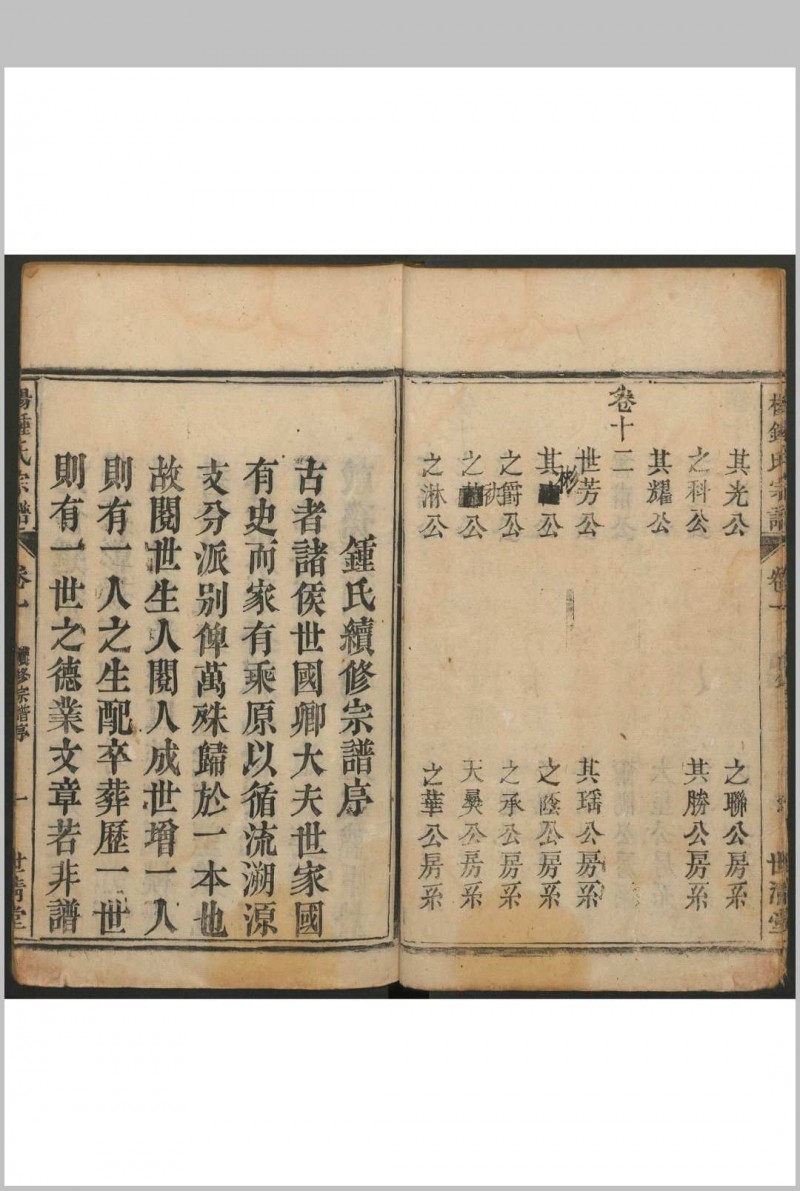 其光公 之聯公房系
之科公 其勝公房系
其耀公
卷十二
世芳公 其瑤公房系
其彬公 之蔭公房系
之爵公 之承公房系
之 公 天奠公房系
之淋公 之華公房系
鍾氏續修宗譜序
古者諸侯世國卿大夫世家國
有史而家有乘原以循流溯源
支分派別俾萬殊歸於一本也
故閱世生人閱人成世增一人
則有一人之生配卒葬歷一世
則有一世之德業文章若非譜
鍾氏宗譜 卷一 續修宗譜序 一 世清堂